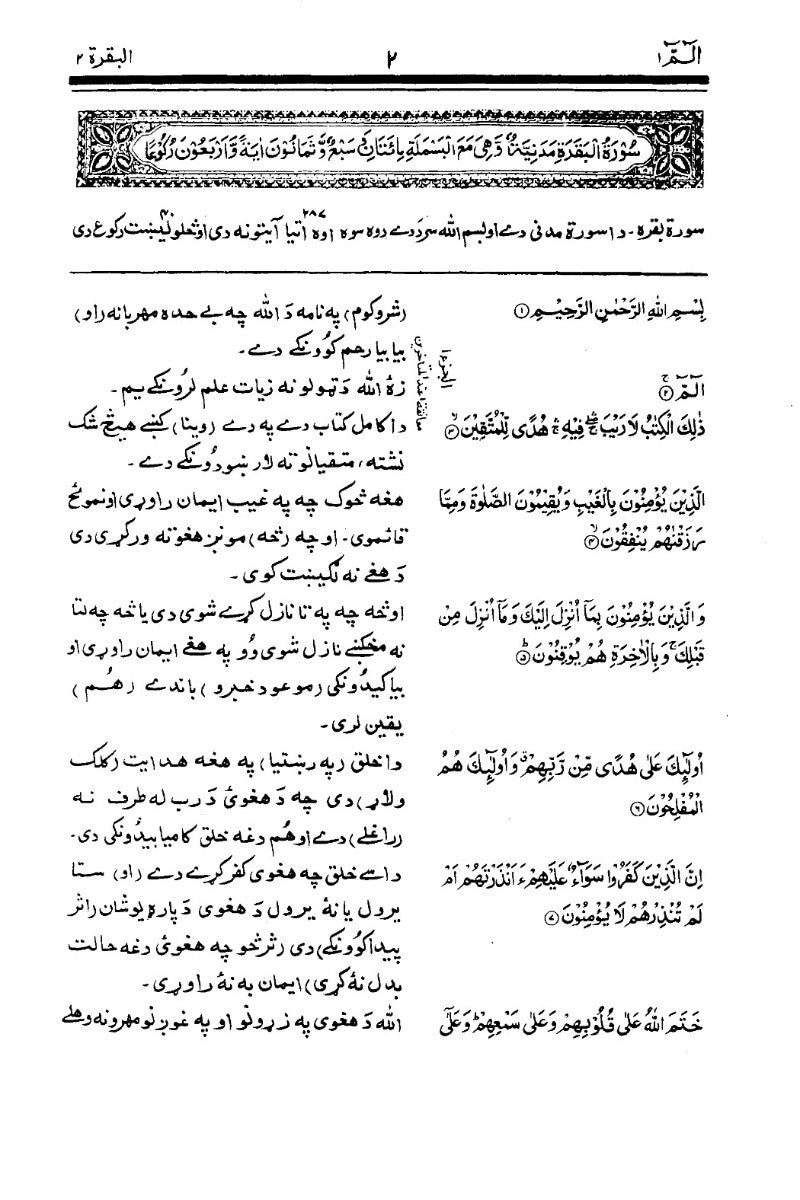 الٓمّٓ ١
٢
البقرة ٢
سُوْرَةُ الْبَقَرَةِ مَدَنِيَّةٌ وَّهِيَ مَعَ الْبَسْمَلَةِ مِائَتَانِ سَبْعٌ وَّثَمَانُوْنَ اٰيَةً وَّاَرْبَعُوْنَ رُكُوْعًا
سورة بقره - دا سورة مدنی دے او بسم الله سره دے دوه سوه اوه اتيا ٢٨٧ آيتونه دی او څلوېښت ٤٠ رکوع دی
بِسْمِ اللهِ الرَّحْمٰنِ الرَّحِيْمِ ①
(شروکوم) په نامه دَ الله چه بے حده مهربانه (او)
بيا بيا رحم کوُونکے دے۔
الجزء ١
معانقة عند المتاخرين
الٓمّٓ ②
زهٔ الله دَ ټولو نه زيات علم لرُونکے يم۔
ذٰلِكَ الْكِتٰبُ لَا رَيْبَ ۛ فِيْهِ ۛ هُدًى لِّلْمُتَّقِيْنَ ③
دا کامل کتاب دے په دے (وينا) کښے هيڅ شک
نشته، متقيانو ته لار ښودُونکے دے۔
الَّذِيْنَ يُؤْمِنُوْنَ بِالْغَيْبِ وَيُقِيْمُوْنَ الصَّلٰوةَ وَمِمَّا
رَزَقْنٰهُمْ يُنْفِقُوْنَ ④
هغه څوک چه په غيب ايمان راوړی او نموُنځ
قائموی۔ او چه (څه) مونږ هغو ته ورکړی دی
دَ هغے نه لګښت کوی۔
وَالَّذِيْنَ يُؤْمِنُوْنَ بِمَآ اُنْزِلَ اِلَيْكَ وَمَآ اُنْزِلَ مِنْ
قَبْلِكَ ۚ وَبِالْاٰخِرَةِ هُمْ يُوْقِنُوْنَ ⑤
او څه چه په تا نازل کړے شوی دی يا څه چه لتا
نه مخکښے نازل شوی وُو په هغے ايمان راوړی او
بيا کيدُونکی (موعود خبرو) باندے (هُم)
يقين لری۔
اُولٰٓئِكَ عَلٰى هُدًى مِّنْ رَّبِّهِمْ ۙ وَاُولٰٓئِكَ هُمُ
الْمُفْلِحُوْنَ ⑥
دا خلق (په رښتيا) په هغه هدايت (کلک
ولاړ) دی چه دَ هغوئ دَ رب له طرف نه
(راغلے) دے او هُم دغه خلق کاميابيدُونکی دی۔
اِنَّ الَّذِيْنَ كَفَرُوْا سَوَآءٌ عَلَيْهِمْ ءَاَنْذَرْتَهُمْ اَمْ
لَمْ تُنْذِرْهُمْ لَا يُؤْمِنُوْنَ ⑦
داسے خلق چه هغوی کفر کړے دے (او) ستا
يرول يا نهٔ يرول دَ هغوی دَ پاره يو شان (اثر
پيدا کوُونکے) دی (ترڅو چه هغوئ دغه حالت
بدل نهٔ کړی) ايمان به نهٔ راوړی۔
خَتَمَ اللهُ عَلٰى قُلُوْبِهِمْ وَعَلٰى سَمْعِهِمْ ۖ وَعَلٰٓى
الله دَ هغوی په زړونو او په غوږونو مهرونه وهلے